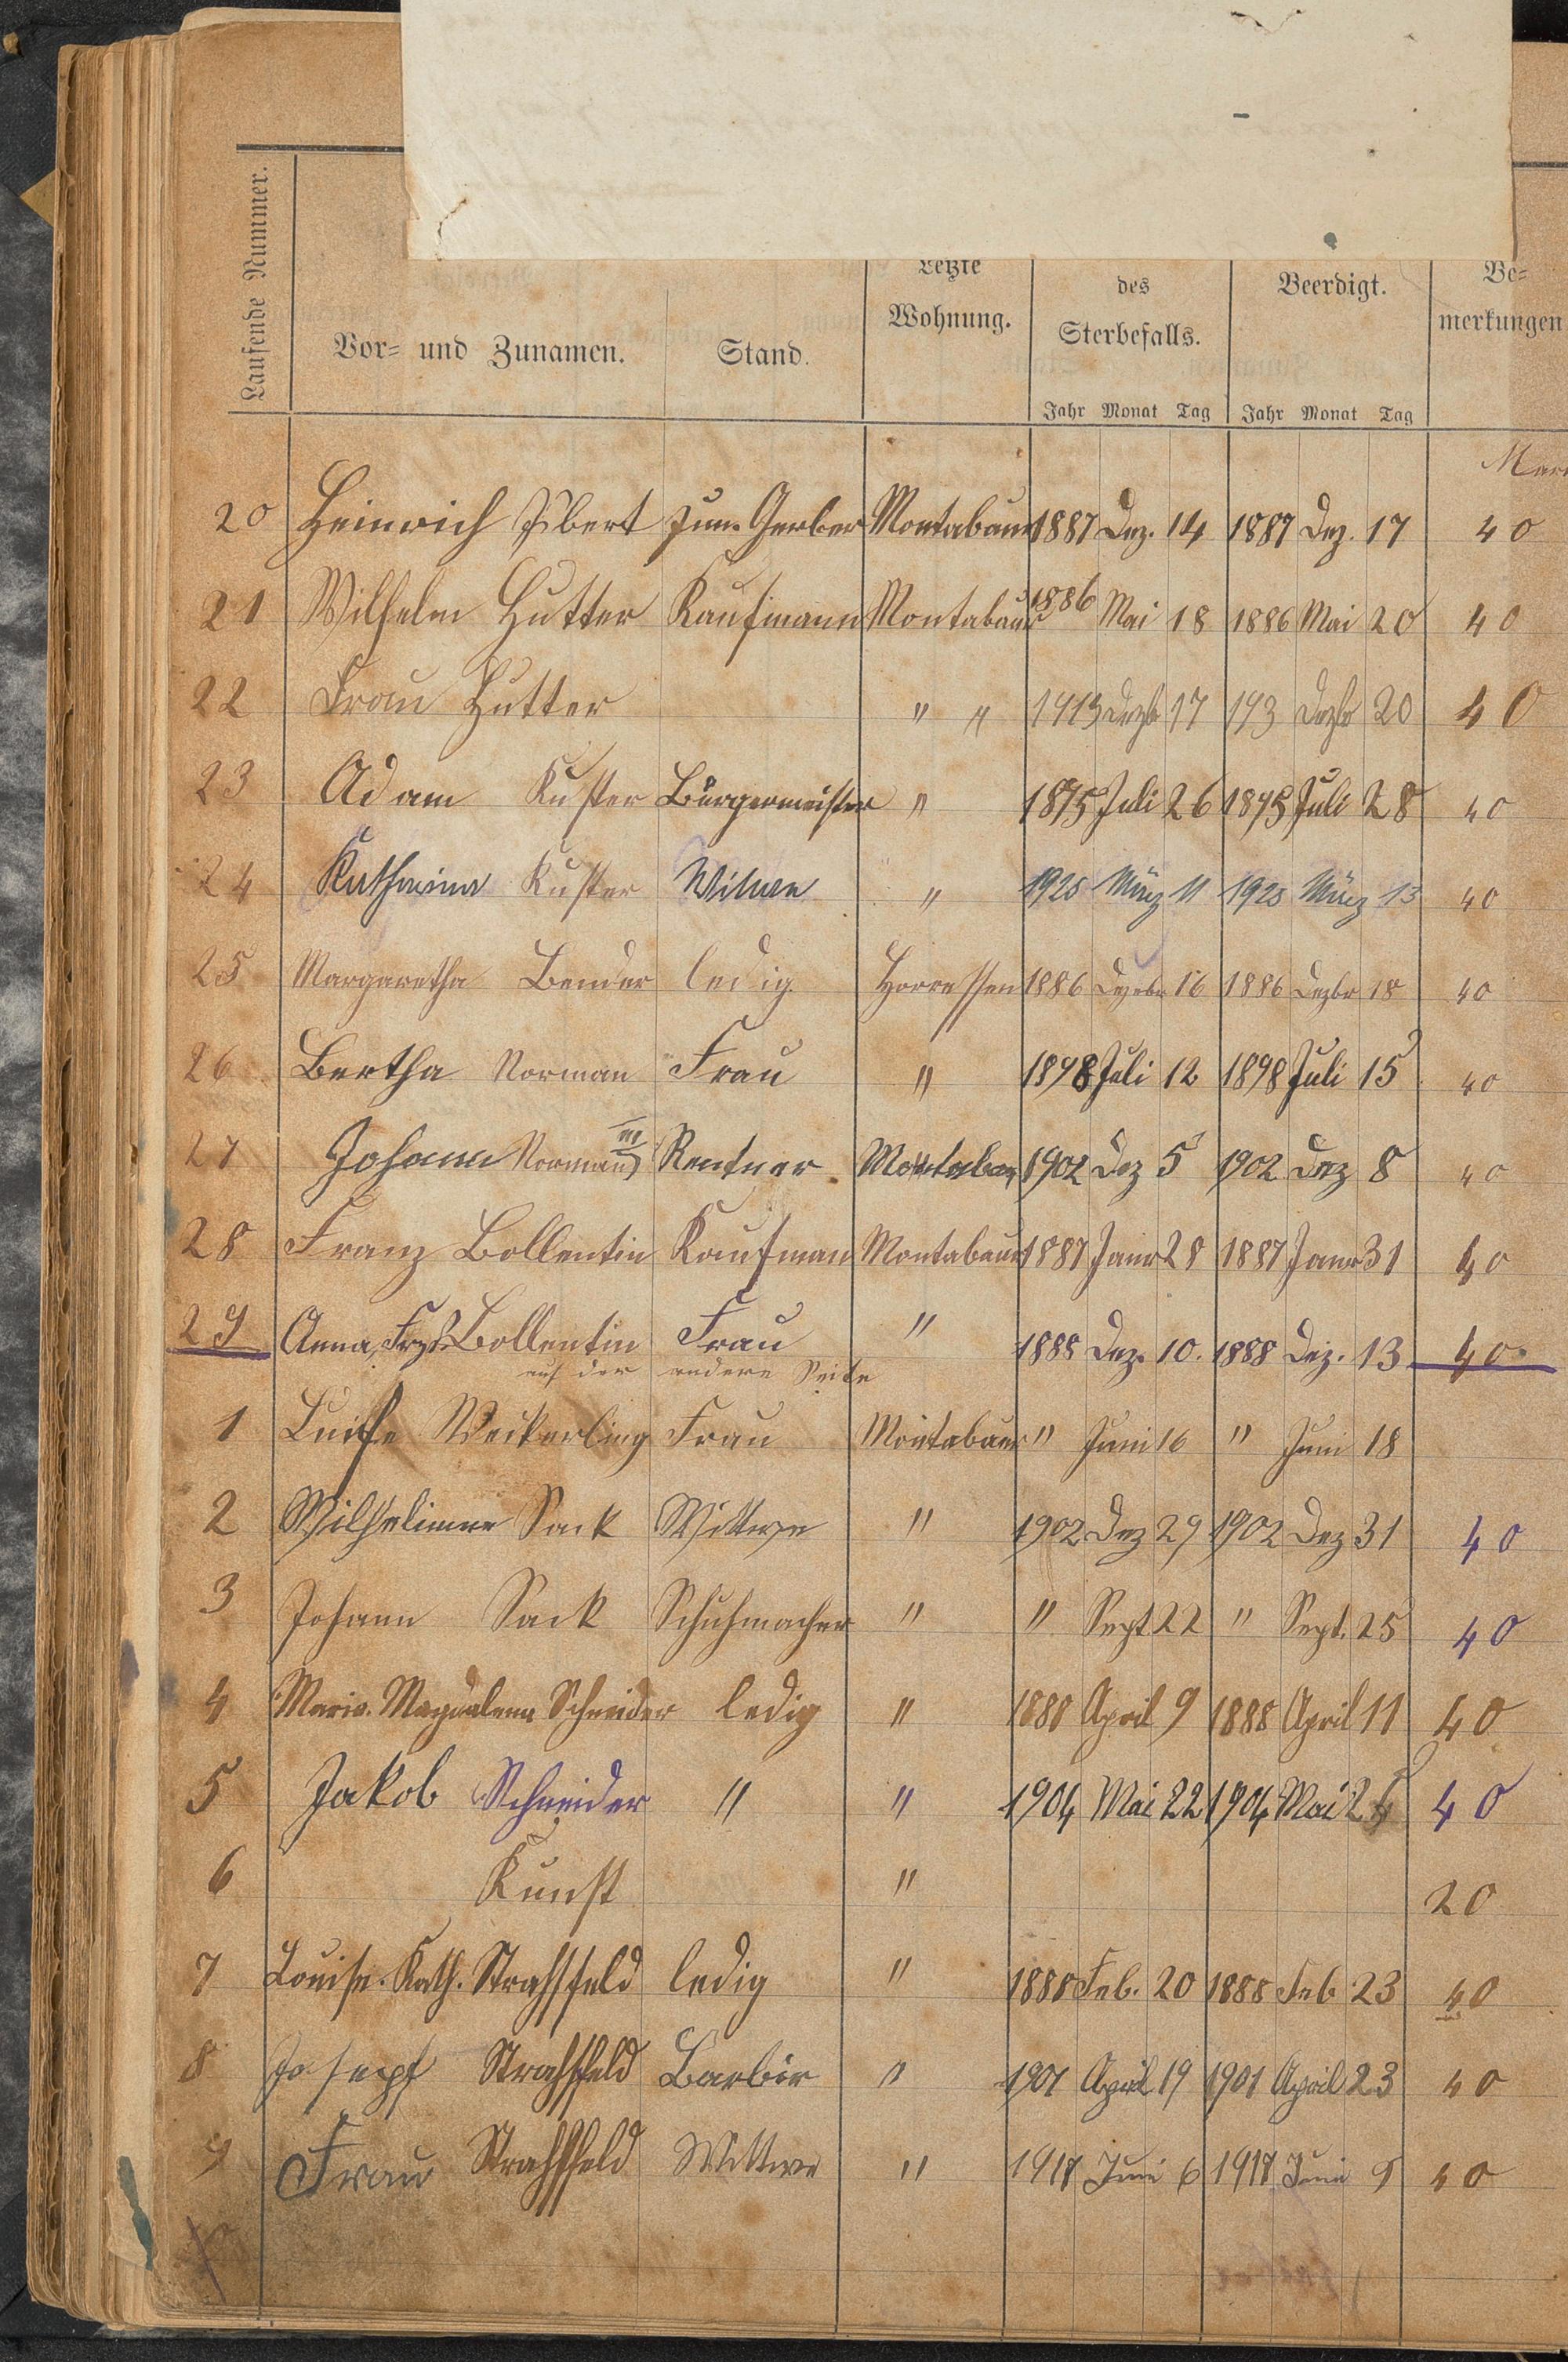 Laufende Nummer.
Vor= und Zunamen.
Stand.
Letzte
Wohnung.
des
Sterbefalls.
Beerdigt.
Be=
merkungen
Jahr Monat Tag Jahr Monat Tag
20 Heinrich jun. Gerber Montabaur 1887 Dez. 14 1887 Dez. 17 40
21 Wilhelm Hutter Kaufmann Montabaur 1886 Mai 18 1886 Mai 20 40
22 Frau Hutter " " 1913 Dezbr 17 193 Dezbr 20 40
23 Adam Kuster Bürgermeister " 1875 Juli 26 1875 Juli 28 40
24 Katharina Kuster Witwe " 1925 März 11 1925 März 13 40
25 Margaretha Bender ledig Horressen 1886 Dezebr 16 1886 Dezbr 18 40
26 Bertha Norman Frau " 1898 Juli 12 1898 Juli 15 40
27 Johann Norman III Rentner Montabaur 1902 Dez 5 1902 Dez 8 40
28 Franz Bollentin Kaufman Montabaur 1887 Janr 28 1887 Janr 31 40
29 Anna, Bollentin Frau " 1888 Dez. 10. 1888 Dez. 13 40.
auf der andere Seite
1 Luise Weikerling Frau Montabaur " Juni 16 " Juni 18
2 Wilhelimne Sack Wittwe " 1902 Dez 29 1902 Dez 31 40
3 Johann Sack Schuhmacher " " Sept 22 " Sept. 25 40
4 Maria. Magdalena Schneider ledig " 1888 April 9 1888 April 11 40
5 Jakob Schneider " " 1904 Mai 22 1904 Mai 40
6 Kunst " 20
7 Louise. Kath. Strahsfeld ledig " 1888 Feb. 20 1888 Feb 23 40
8 Josepf Strahsfeld Barbir " 1901 April 19 1901 April 23 40
9 Frau Strahsfeld Wittwe " Juni 6 Juni 9 40